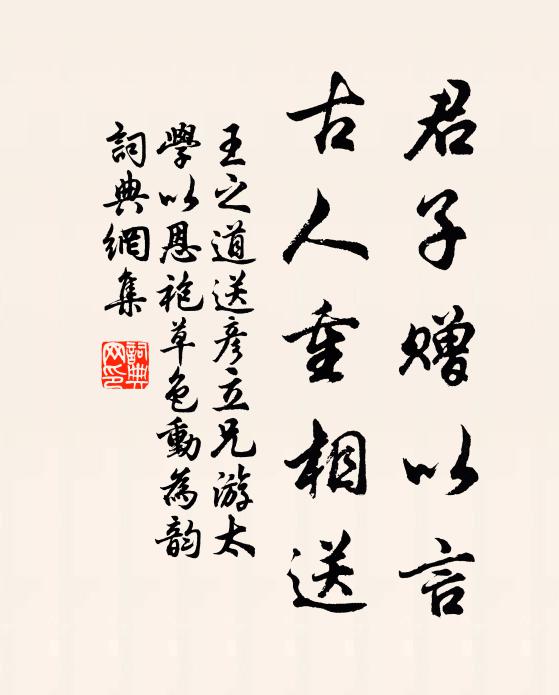 君子赠以言
古人重相送
王之道送彥立兄游太
學以恩袍草色動為韵
詞典網集
詞典
网印